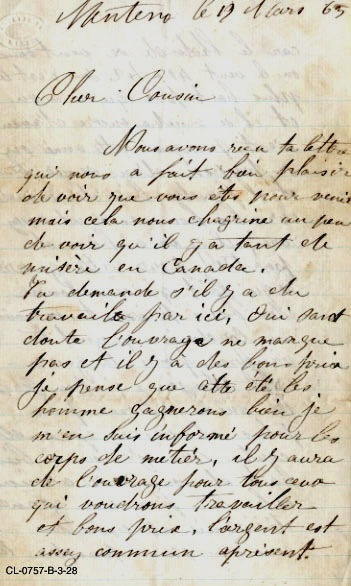 Manteno le 19 Mars 65
Cher Cousin
Nous avons reçu ta lettre
qui nous a fait bien plaisir
de voir que vous êts pour venir
mais cela nous chagrine un peu
de voir qu'il y a tant de
misère en Canada.
Tu demande s'il y a du
travaille par ici, oui sans
doute l'ouvrage ne manque
pas et il y a des bons prix
Je pense que cette été les
homme gagnerons bien je
m'en suis informé pour les
corps de metier, il y aura
de l'ouvrage pour tous ceux
qui voudrons travailler
et bons prix, l'argent est
assez commun apresent.
CL-0757-B-3-28